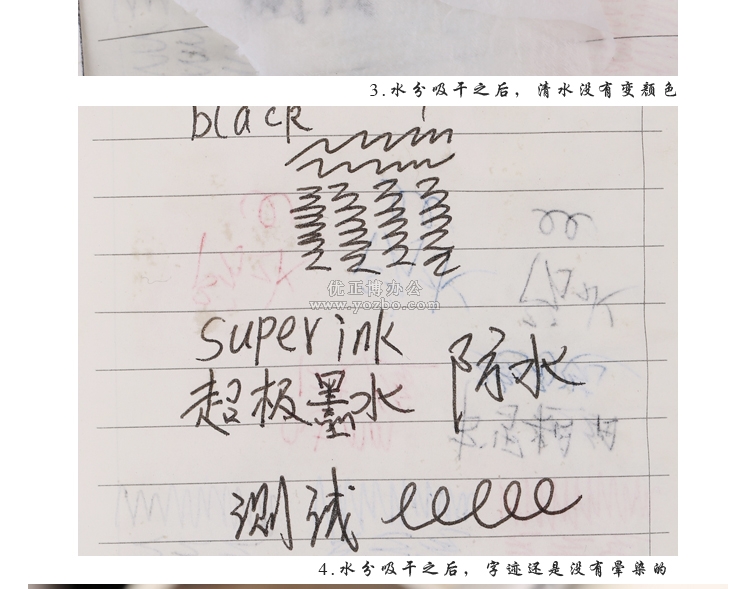 3.水分吸干之后，清水没有变颜色
black
优正博办公
www.yozbo.com
super ink
超极墨水 防水
测试
4.水分吸干之后，字迹还是没有晕染的